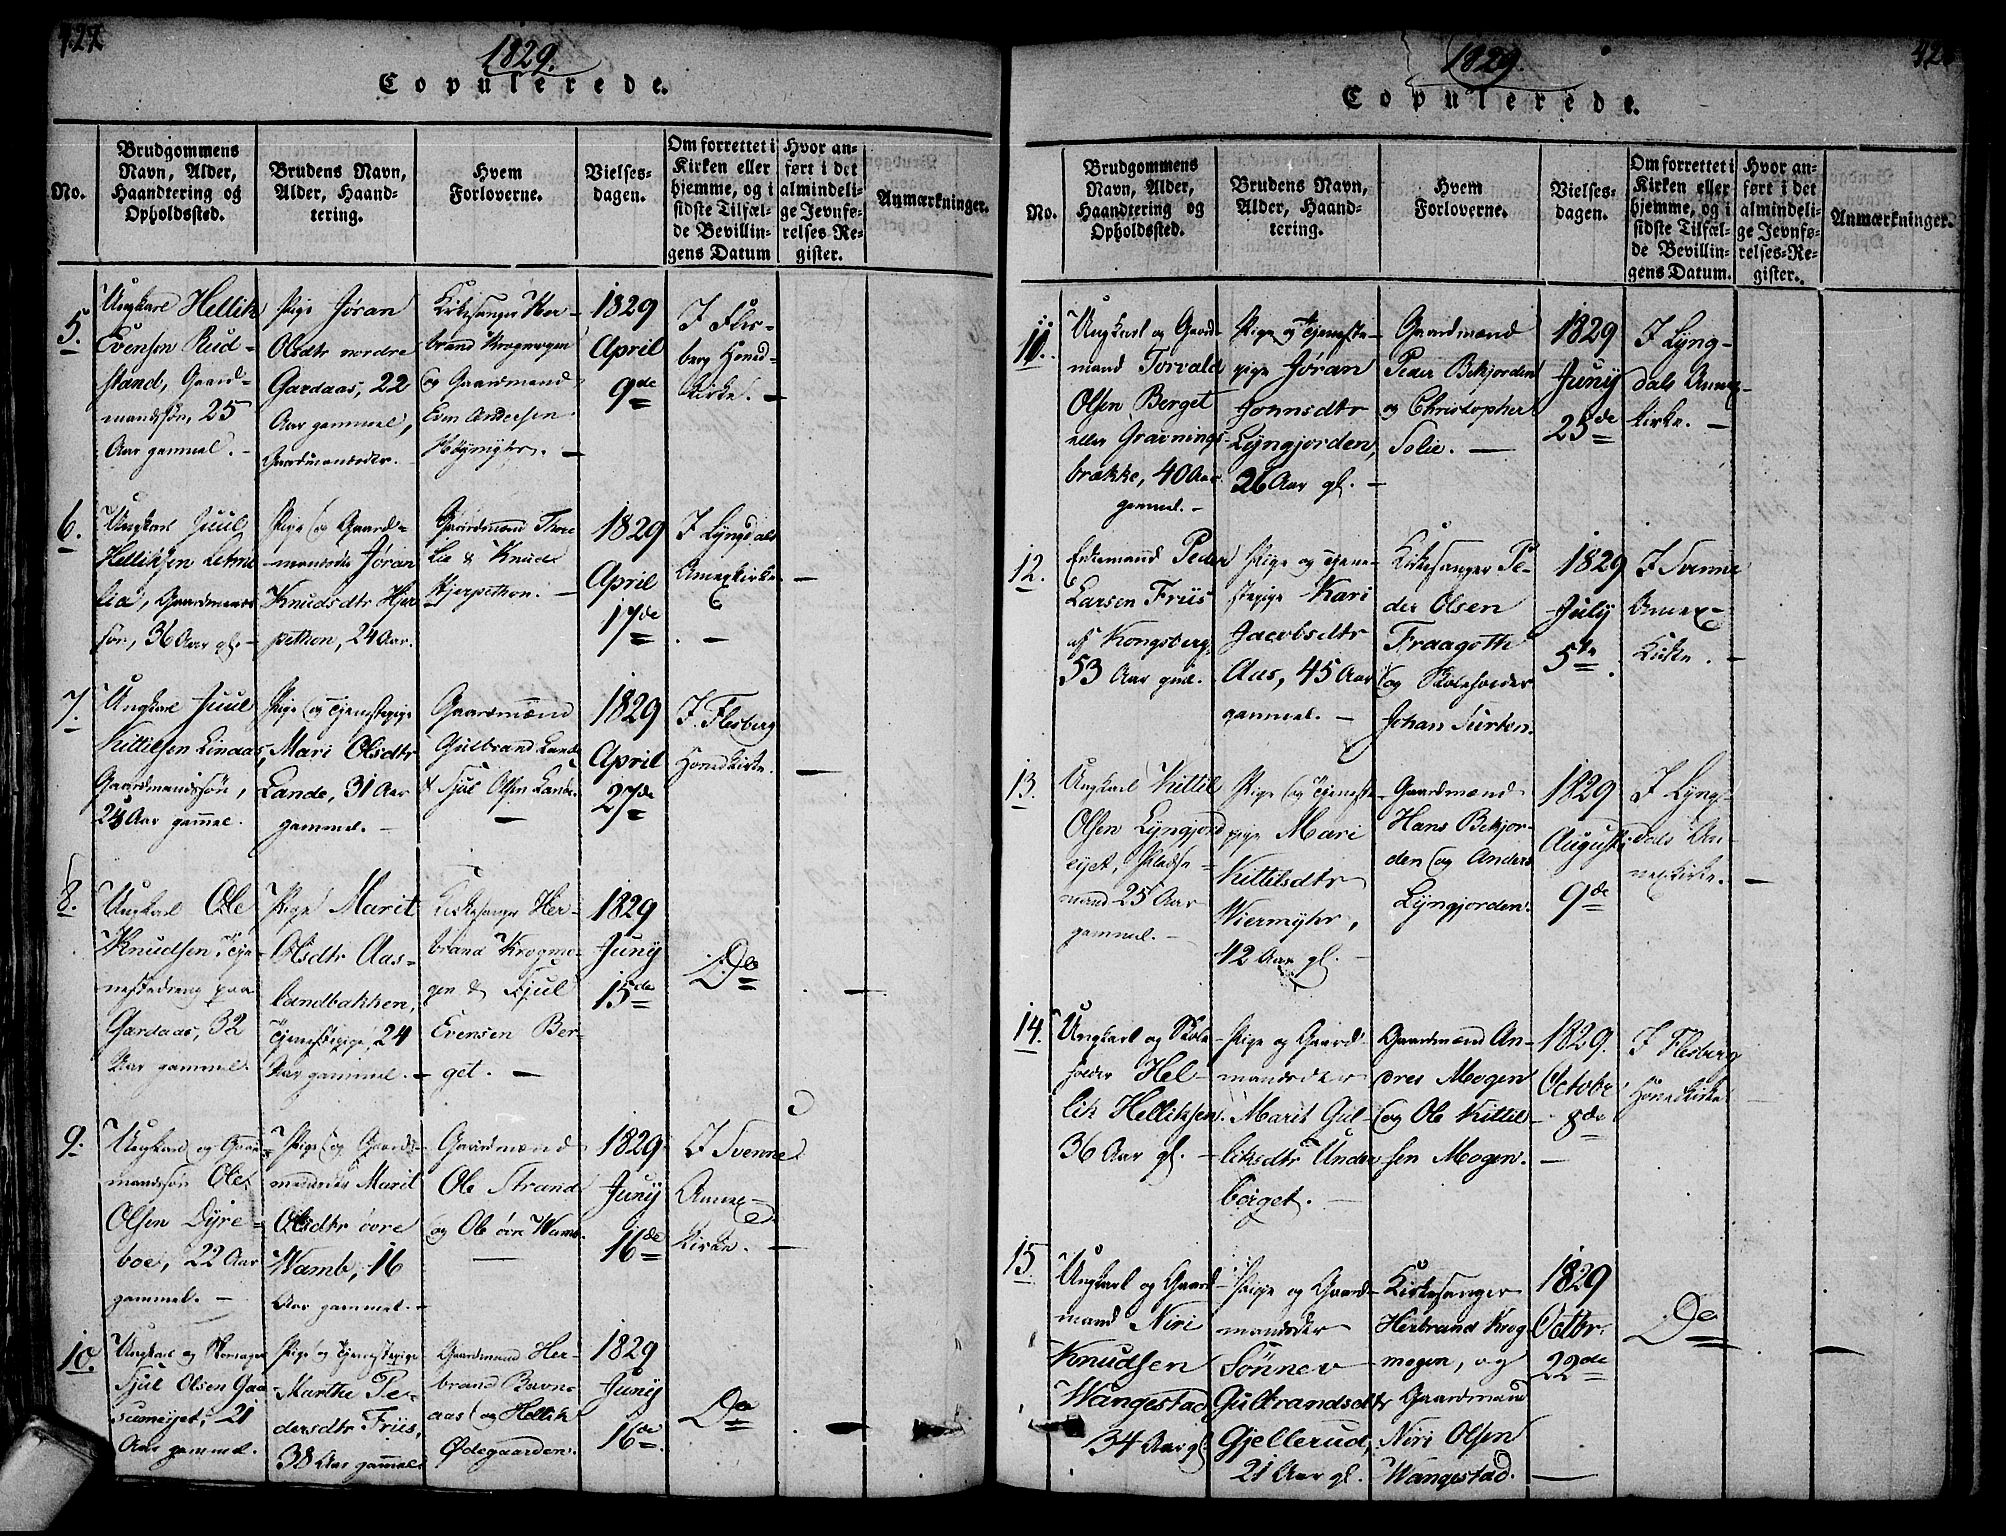 427
1829.
Copulerede.
No.
Brudgommens
Navn, Alder,
Haandtering og
Opholdssted.
Brudens Navn,
Alder, Haand-
tering.
Hvem
Forloverne.
Vielses-
dagen.
Om forrettet i
Kirken eller
hjemme, og i
sidste Tilfæl-
de Bevillin-
gens Datum
Hvor an-
ført i det
almindeli-
ge Jevnfø-
relses-Re-
gister.
Anmærkninger.
5.
Ungkarl Hellik
Evensen Rud-
stand, Gaard-
mandssøn, 25
Aar gammel. -
Pige Jøran
Olsdtr nordre
Gardaas, 22
Aar gammel,
Gaardmandsdtr. -
Kirkesanger Her-
brand Krogmogen
og Gaardmand
Even Andersen
Høymyhr. -
1829
April
9de
I Fles-
berg Hoved-
Kirke. -
6.
Ungkarl Juul
Helliksen
lia, Gaardmands
søn, 36 Aar gl. -
Pige og Gaard-
mandsdtr Jøran
Knudsdtr Hjer-
pethon, 24 Aar.
Gaardmænd Thore
Lie & Knud
Hjerpethon. -
1829
April
17de
I Lyngdals
Annexkirke
. -
7.
Ungkarl Juul
Kittilsen Lindaas,
Gaardmandssøn,
28 Aar gammel.
Pige og Tjenestepige
Mari Olsdtr
Lande, 31 Aar
gammel. -
Gaardmænd
Gulbrand Lande
& Tjul Olsen Lande.
-
1829
April
27de
I Flesberg
Hovedkirke. -
8.
Ungkarl Ole
Knudsen Tje-
nestedreng paa
Gardaas, 32
Aar gammel.
Pige Marit
Olsdtr Aas-
landbakken,
Tjenestepige, 24
Aar gammel. -
Kirkesanger Her-
brand Krogmo-
gen & Tjul
Evensen Ber-
get. -
1829
Juny
15de
Do -
9.
Ungkarl og Gaard-
mandssøn Ole
Olsen Dyre-
boe, 22 Aar
gammel. -
Pige og Gaard-
mandsdtr Marit
Olsdtr øvre
Wamb, 16
Aar gammel. -
Gaardmænd
Ole Strand
og Ole øvre Wamb.
-
1829
Juny
16de
I Svenne
Annex-
Kirke. -
10.
Ungkarl og
Tjul Olsen Gaa
sumeyet, 21
Aar gammel.
Pige og Tjenestepige
Marthe Pe-
dersdtr Friis,
38 Aar gammel
Gaardmænd Her-
brand Bavn-
aas og Hellik
Ødegaarden.
1829
Juny
16de
Do . -
1829.
Copulerede.
No.
Brudgommens
Navn, Alder,
Haandtering og
Opholdssted.
Brudens Navn,
Alder, Haand-
tering.
Hvem
Forloverne.
Vielses-
dagen.
Om forrettet i
Kirken eller
hjemme, og i
sidste Tilfæl-
de Bevillin-
gens Datum.
Hvor an-
ført i det
almindeli-
ge Jevnfø-
relses-Re-
gister.
Anmærkninger.
11.
Ungkarl og Gaard-
mand Torvald
Olsen Berget
eller Gravnings-
brække, 40 Aar
gammel. -
Pige og Tjeneste-
pige Jøran
Jonnsdtr
Lyngjorden,
26 Aar gl. -
Gaardmænd
Peder Bekjorden
og Christopher
Solie. -
1829
Juny
25de
I Lyng-
dals Annex-
Kirke. -
12.
Enkemand Peder
Larsen Friis
af Kongsberg,
53 Aar gml.
Pige og Tjene-
stepige Kari
Jacobsdtr
Aas, 45 Aar
gammel. -
Kirkesanger Pe-
der Olsen
Fraagoth
og Skoleholder
Johan Turten.
1829
July
5te
I Svenne
Annex-
Kirke. -
13.
Ungkarl Kittil
Olsen Lyngjord
eyet, Pladse-
mand 25 Aar
gammel. -
Pige og Tjeneste-
pige Mari
Kittilsdtr
Wiermyhr,
42 Aar gl. -
Gaardmænd
Hans Bekjor-
den og Anders
Lyngjorden.
1829
August
9de
I Lyng-
dals An-
nexkirke. -
14.
Ungkarl og Skole-
holder Hel-
lik Helliksen
36 Aar gl. -
Pige og Gaard-
mandsdtr
Marit Gul-
liksdtr Under
berget. -
Gaardmænd An-
dres Mogen
og Ole Kittil-
sen Mogen. -
1829.
October
8de
I Flesberg
Hovedkirke. -
15.
Ungkarl og Gaard-
mand Niri
Knudsen
Wangestad
34 Aar gl.
Pige og Gaard-
mandsdtr
Sønnev
Gulbrandsdtr
Gjellerud,
21 Aar gl.
Kirkesanger
Herbrand Krog-
mogen, og
Gaardmand
Niri Olsen
Wangestad.
1829
Octbr.
22de
-
Do -